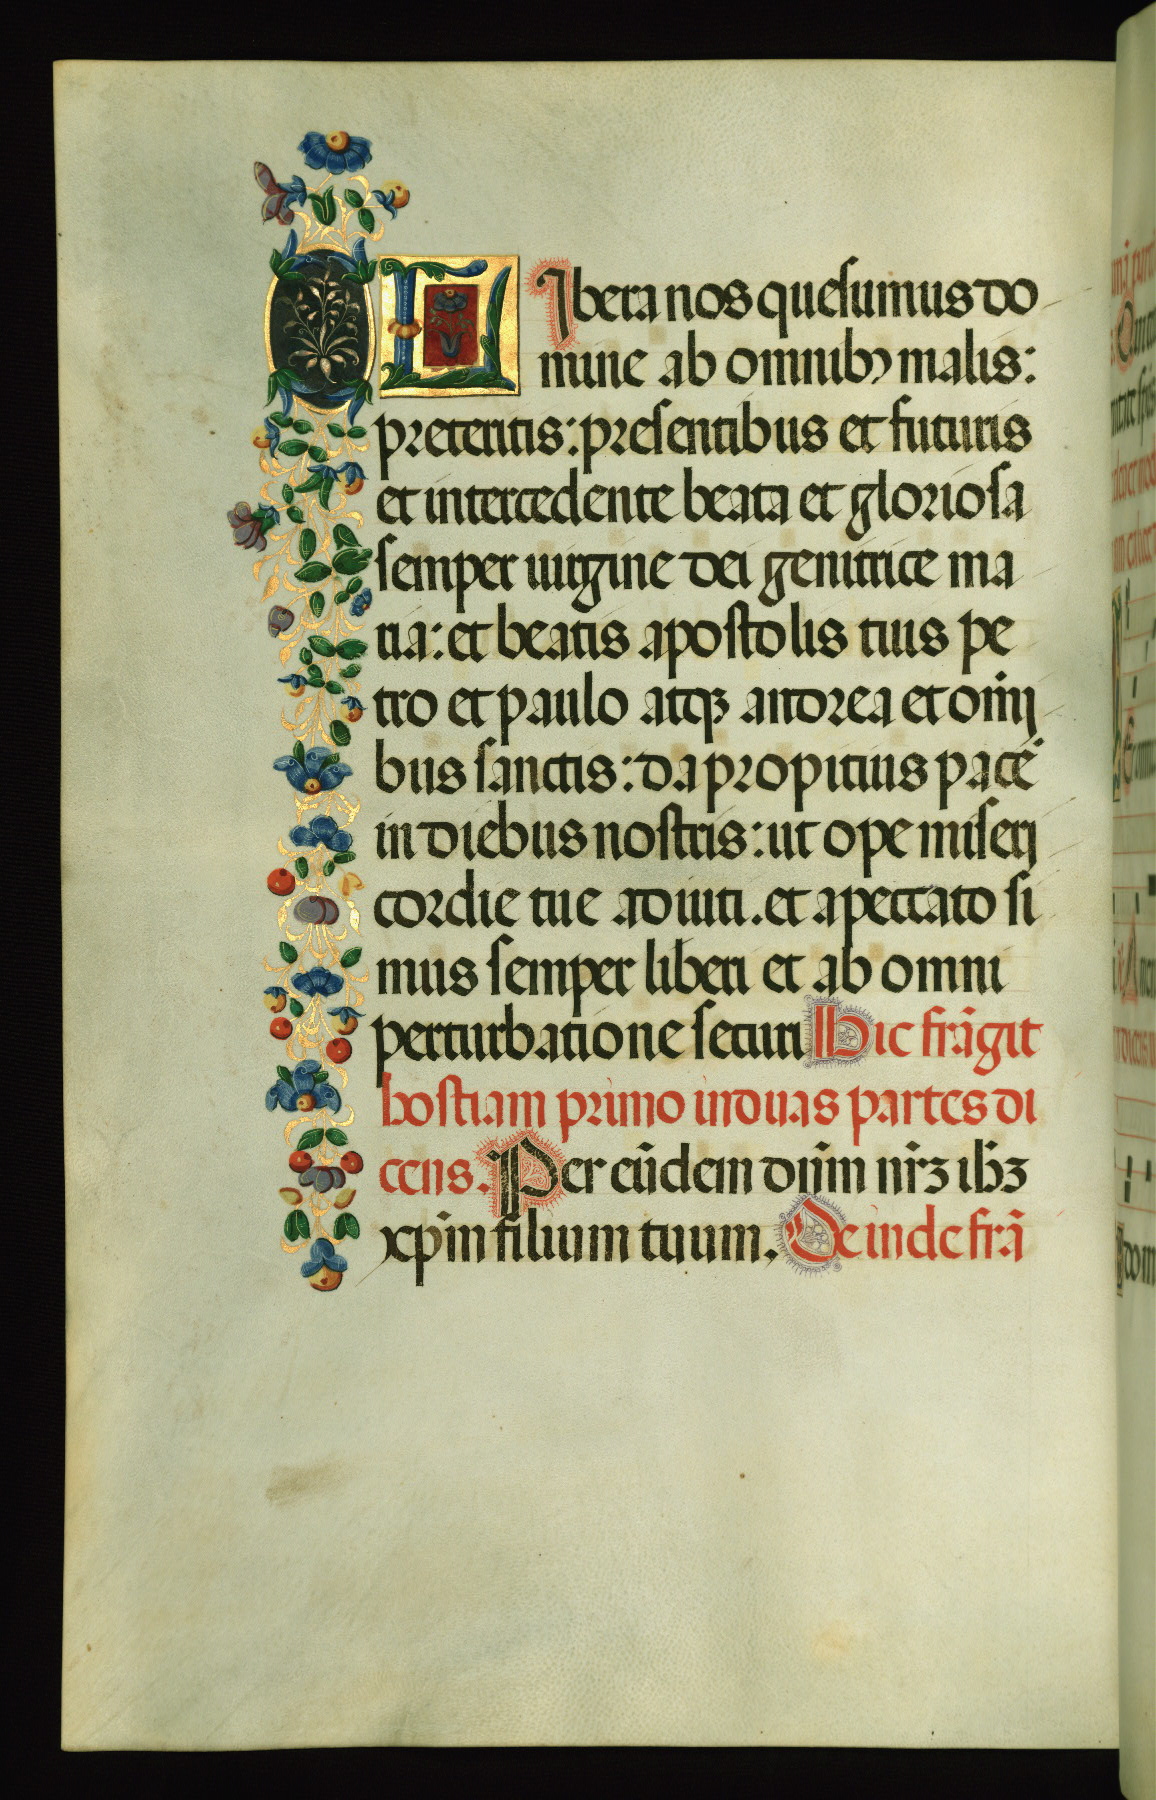 LIbera nos quesumus do
mine ab omnibꝫ malis:
preteritis: presentibus et futuris
et intercedente beata et gloriosa
semper uirgine dei genitrice ma
ria: et beatis apostolis tuis pe
tro et paulo atqꝫ andrea et om̄i
bus sanctis: da propitius pacē
in diebus nostris: ut ope miseri
cordie tue adiuti. et a peccato si
mus semper liberi et ab omni
perturbatione securi Hic frāgit
hostiam primo in duas partes di
cens. Per eūdem dn̄m nr̄ꝫ ih̄ꝫ
xp̄m filium tuum. Deinde frā